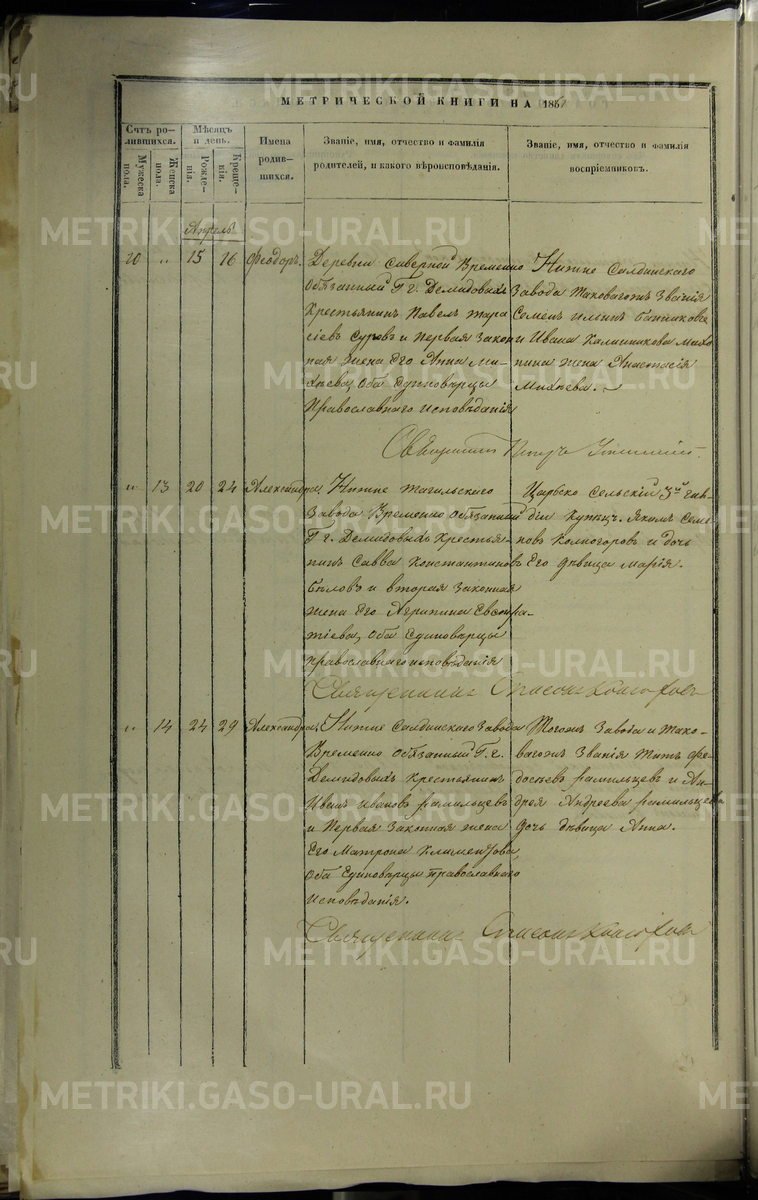 МЕТРИЧЕСКОЙ КНИГИ НА 186
Счтъ ро-
лившихся.
Мужеска
пола.
Женска
пола.
Мѣсяцъ
и день.
Рожде-
нія.
Креще-
нія.
Имена
родив-
шихся.
Званіе, имя, отчество и фамилія
родителей, и какого вѣроисповѣданія.
Званіе, имя, отчество и фамилія
воспріемниковъ.
Апрель
20 " 15 16 Феодоръ.
Деревни Северной Временно
Обязанный Г.г. Демидовыхъ
Крестьянинъ Павелъ Тара
сіевъ Суровъ и Первая Закон
ная Жена Его Анна Ми-
хѣева, Оба Единоверцы
Православнаго исповѣданія
Нижне Салдинскаго
Завода Таковагожъ Званія
Семенъ Ильинъ
и Ивана Калинникова
жена Анастасія
Михѣева.
Священникъ Петръ
" 13 20 24 Александра,
Нижне Тагильскаго
Завода Временно Обязанный
Г.г. Демидовыхъ Крестья-
нинъ Савва Константиновъ
Бѣловъ и вторая Законная
жена Его Агрипина Евстра-
тіева, Оба Единоверцы
православнаго исповѣданія
Царско Сельскій 3й гиль-
діи Купецъ Яковъ Семе
новъ Колногоровъ и дочь
Его дѣвица Марія.
Священникъ
" 14 24 29 Александра,
Нижне Салдинскаго Завода
Временно Обязанный Г.г.
Демидовыхъ Крестьянинъ
Иванъ Ивановъ Фамильцевъ
и Первая Законная жена
Его Матрона Климентова,
Оба Единоверцы православнаго
Исповѣданія.
Тогожъ Завода и Тако-
вагожъ Званія Титъ Фе-
досѣевъ Фамильцевъ и Ан-
дрея Андреева Фамильцева
дочь дѣвица Анна.
Священникъ
METRIKI.GASO-URAL.RU